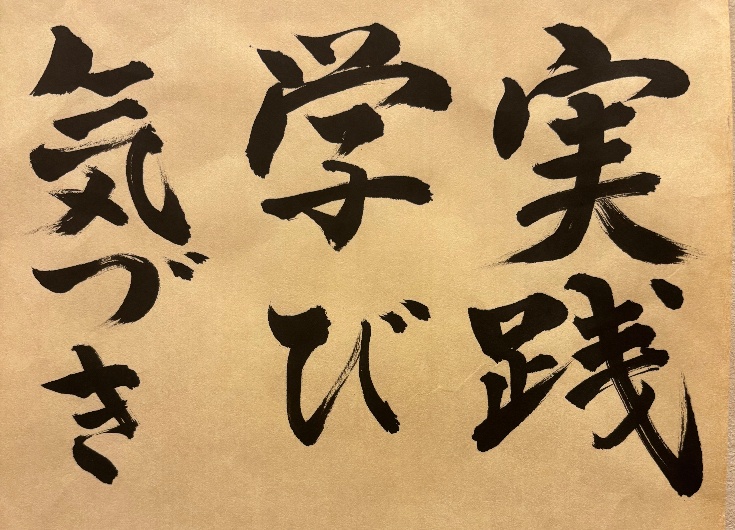 実践
学び
気づき